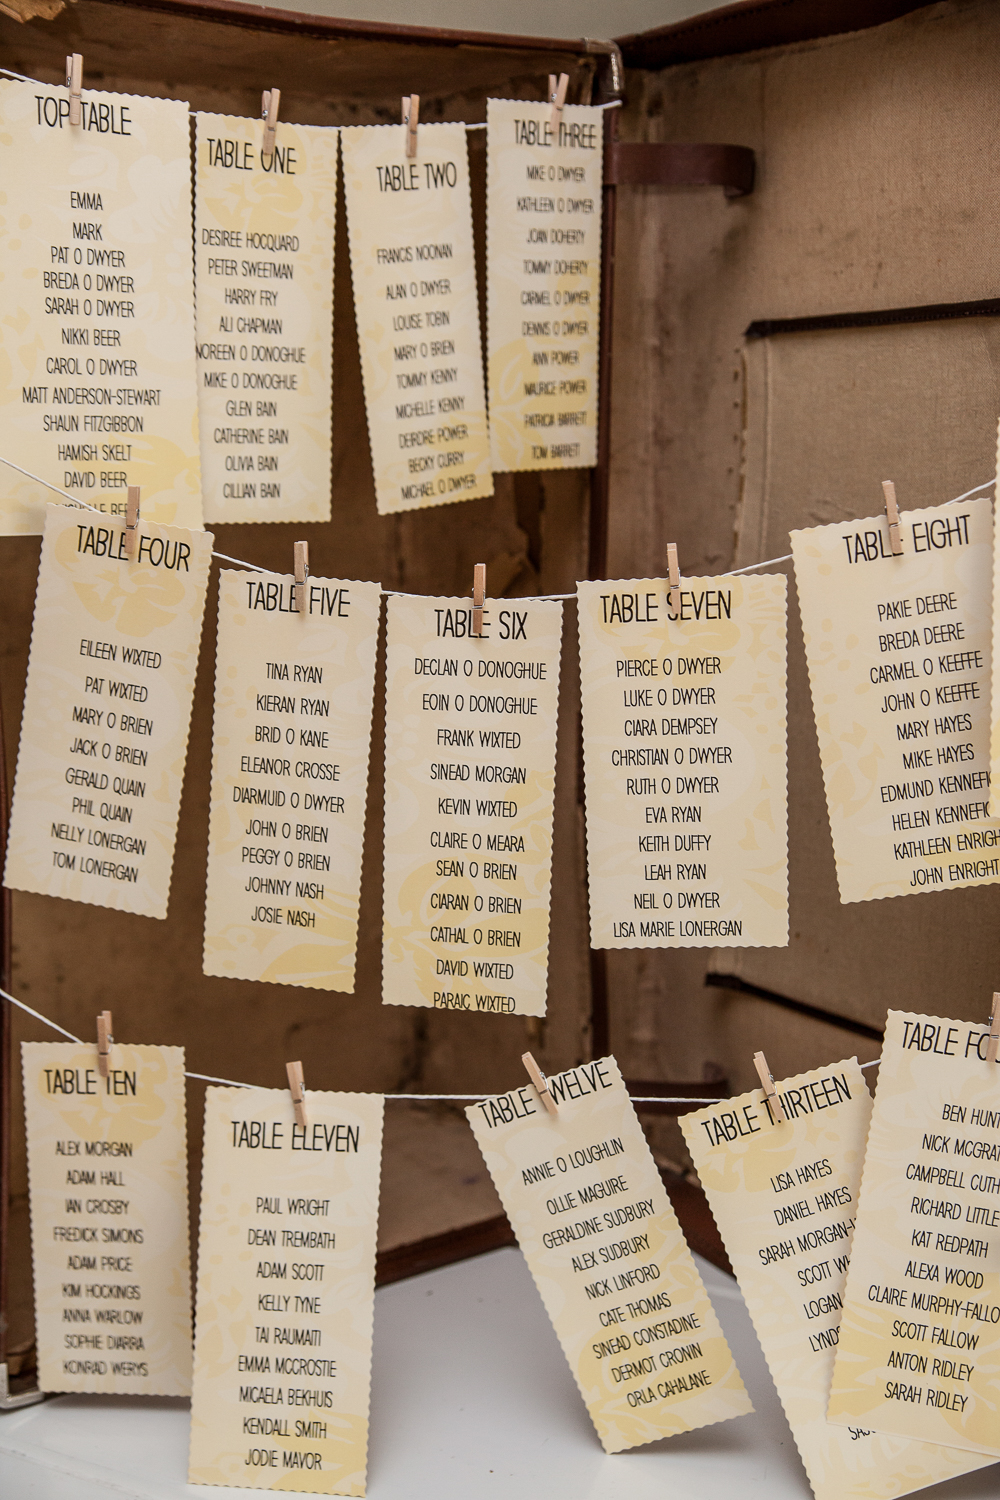 TOP TABLE
EMMA
MARK
PAT O DWYER
BREDA O DWYER
SARAH O DWYER
NIKKI BEER
CAROL O DWYER
MATT ANDERSON-STEWART
SHAUN FITZGIBBON
HAMISH SKELT
DAVID BEER
TABLE ONE
DESIREE HOCQUARD
PETER SWEETMAN
HARRY FRY
ALI CHAPMAN
NOREEN O DONOGHUE
MIKE O DONOGHUE
GLEN BAIN
CATHERINE BAIN
OLIVIA BAIN
CILLIAN BAIN
TABLE TWO
FRANCIS NOONAN
ALAN O DWYER
LOUISE TOBIN
MARY O BRIEN
TOMMY KENNY
MICHELLE KENNY
DEIRDRE POWER
BECKY CURRY
MICHAEL O DWYER
TABLE THREE
MIKE O DWYER
KATHLEEN O DWYER
JOAN DOHERTY
TOMMY DOHERTY
CARMEL O DWYER
DENNIS O DWYER
ANN POWER
MAURICE POWER
PATRICIA BARRETT
TOM BARRETT
TABLE FOUR
EILEEN WIXTED
PAT WIXTED
MARY O BRIEN
JACK O BRIEN
GERALD QUAIN
PHIL QUAIN
NELLY LONERGAN
TOM LONERGAN
TABLE FIVE
TINA RYAN
KIERAN RYAN
BRID O KANE
ELEANOR CROSSE
DIARMUID O DWYER
JOHN O BRIEN
PEGGY O BRIEN
JOHNNY NASH
JOSIE NASH
TABLE SIX
DECLAN O DONOGHUE
EOIN O DONOGHUE
FRANK WIXTED
SINEAD MORGAN
KEVIN WIXTED
CLAIRE O MEARA
SEAN O BRIEN
CIARAN O BRIEN
CATHAL O BRIEN
DAVID WIXTED
PARAIC WIXTED
TABLE SEVEN
PIERCE O DWYER
LUKE O DWYER
CIARA DEMPSEY
CHRISTIAN O DWYER
RUTH O DWYER
EVA RYAN
KEITH DUFFY
LEAH RYAN
NEIL O DWYER
LISA MARIE LONERGAN
TABLE EIGHT
PAKIE DEERE
BREDA DEERE
CARMEL O KEEFFE
JOHN O KEEFFE
MARY HAYES
MIKE HAYES
EDMUND KENNEFI
HELEN KENNEFIC
KATHLEEN ENRIGH
JOHN ENRIGHT
TABLE TEN
ALEX MORGAN
ADAM HALL
IAN CROSBY
FREDICK SIMONS
ADAM PRICE
KIM HOCKINGS
ANNA WARLOW
SOPHIE DIARRA
KONRAD WERYS
TABLE ELEVEN
PAUL WRIGHT
DEAN TREMBATH
ADAM SCOTT
KELLY TYNE
TAI RAUMATI
EMMA MCCROSTIE
MICAELA BEKHUIS
KENDALL SMITH
JODIE MAVOR
TABLE TWELVE
ANNIE O LOUGHLIN
OLLIE MAGUIRE
GERALDINE SUDBURY
ALEX SUDBURY
NICK LINFORD
CATE THOMAS
SINEAD CONSTADINE
DERMOT CRONIN
ORLA CAHALANE
TABLE THIRTEEN
LISA HAYES
DANIEL HAYES
SARAH MORGAN-
SCOTT WH
LOGAN
LYNDS
TABLE FO
BEN HUNT
NICK MCGRAT
CAMPBELL CUTH
RICHARD LITTLE
KAT REDPATH
ALEXA WOOD
CLAIRE MURPHY-FALLO
SCOTT FALLOW
ANTON RIDLEY
SARAH RIDLEY